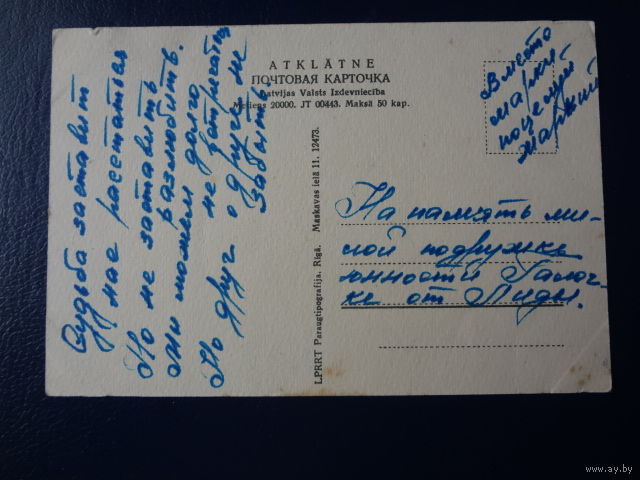 Судьба заставит
нас расстаться
Но не заставить
разлюбить.
Мы можем долго
не встречаться
Но друг о друге не
забыть.
ATKLĀTNE
ПОЧТОВАЯ КАРТОЧКА
Latvijas Valsts Izdevniecība
Metiens 20000. JT 00443. Maksā 50 kap.
LPRRT Paraugtipografija, Rīgā. Maskavas ielā 11. 12473.
Вместо
марки
поцелуй
жаркий
На память ми-
лой подружке
юности Галоч-
ке от Лиды.
www.ay.by